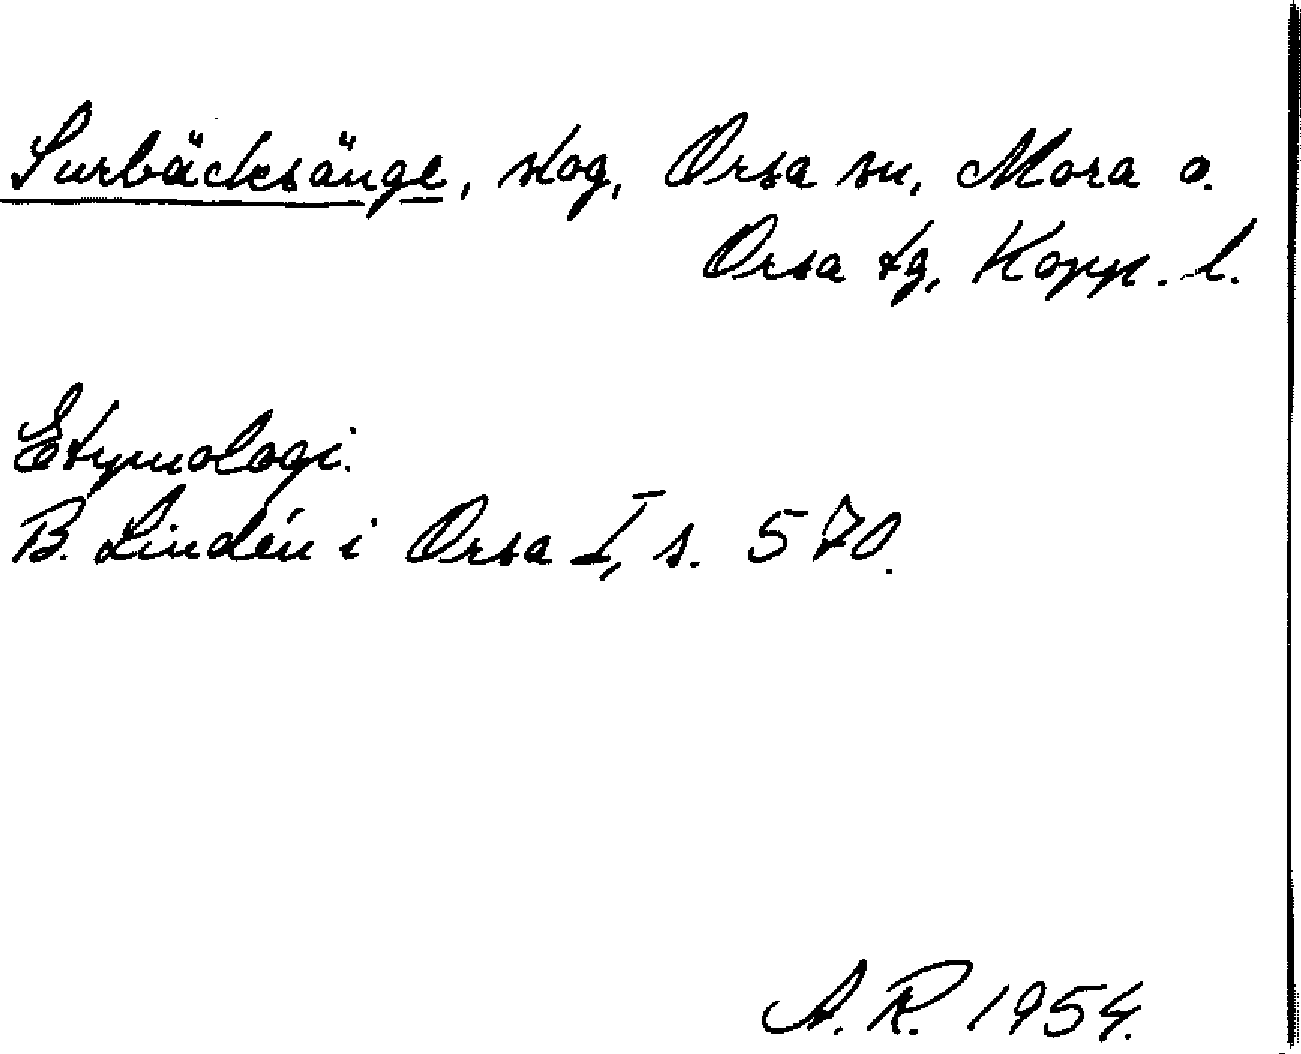 Surbäcksänge, skog, Orsa sn, Mora o.
Orsa tg, Kopp. l.
Etymologi.
B. Lindén i Orsa I, s. 570.
A. R. 1954.